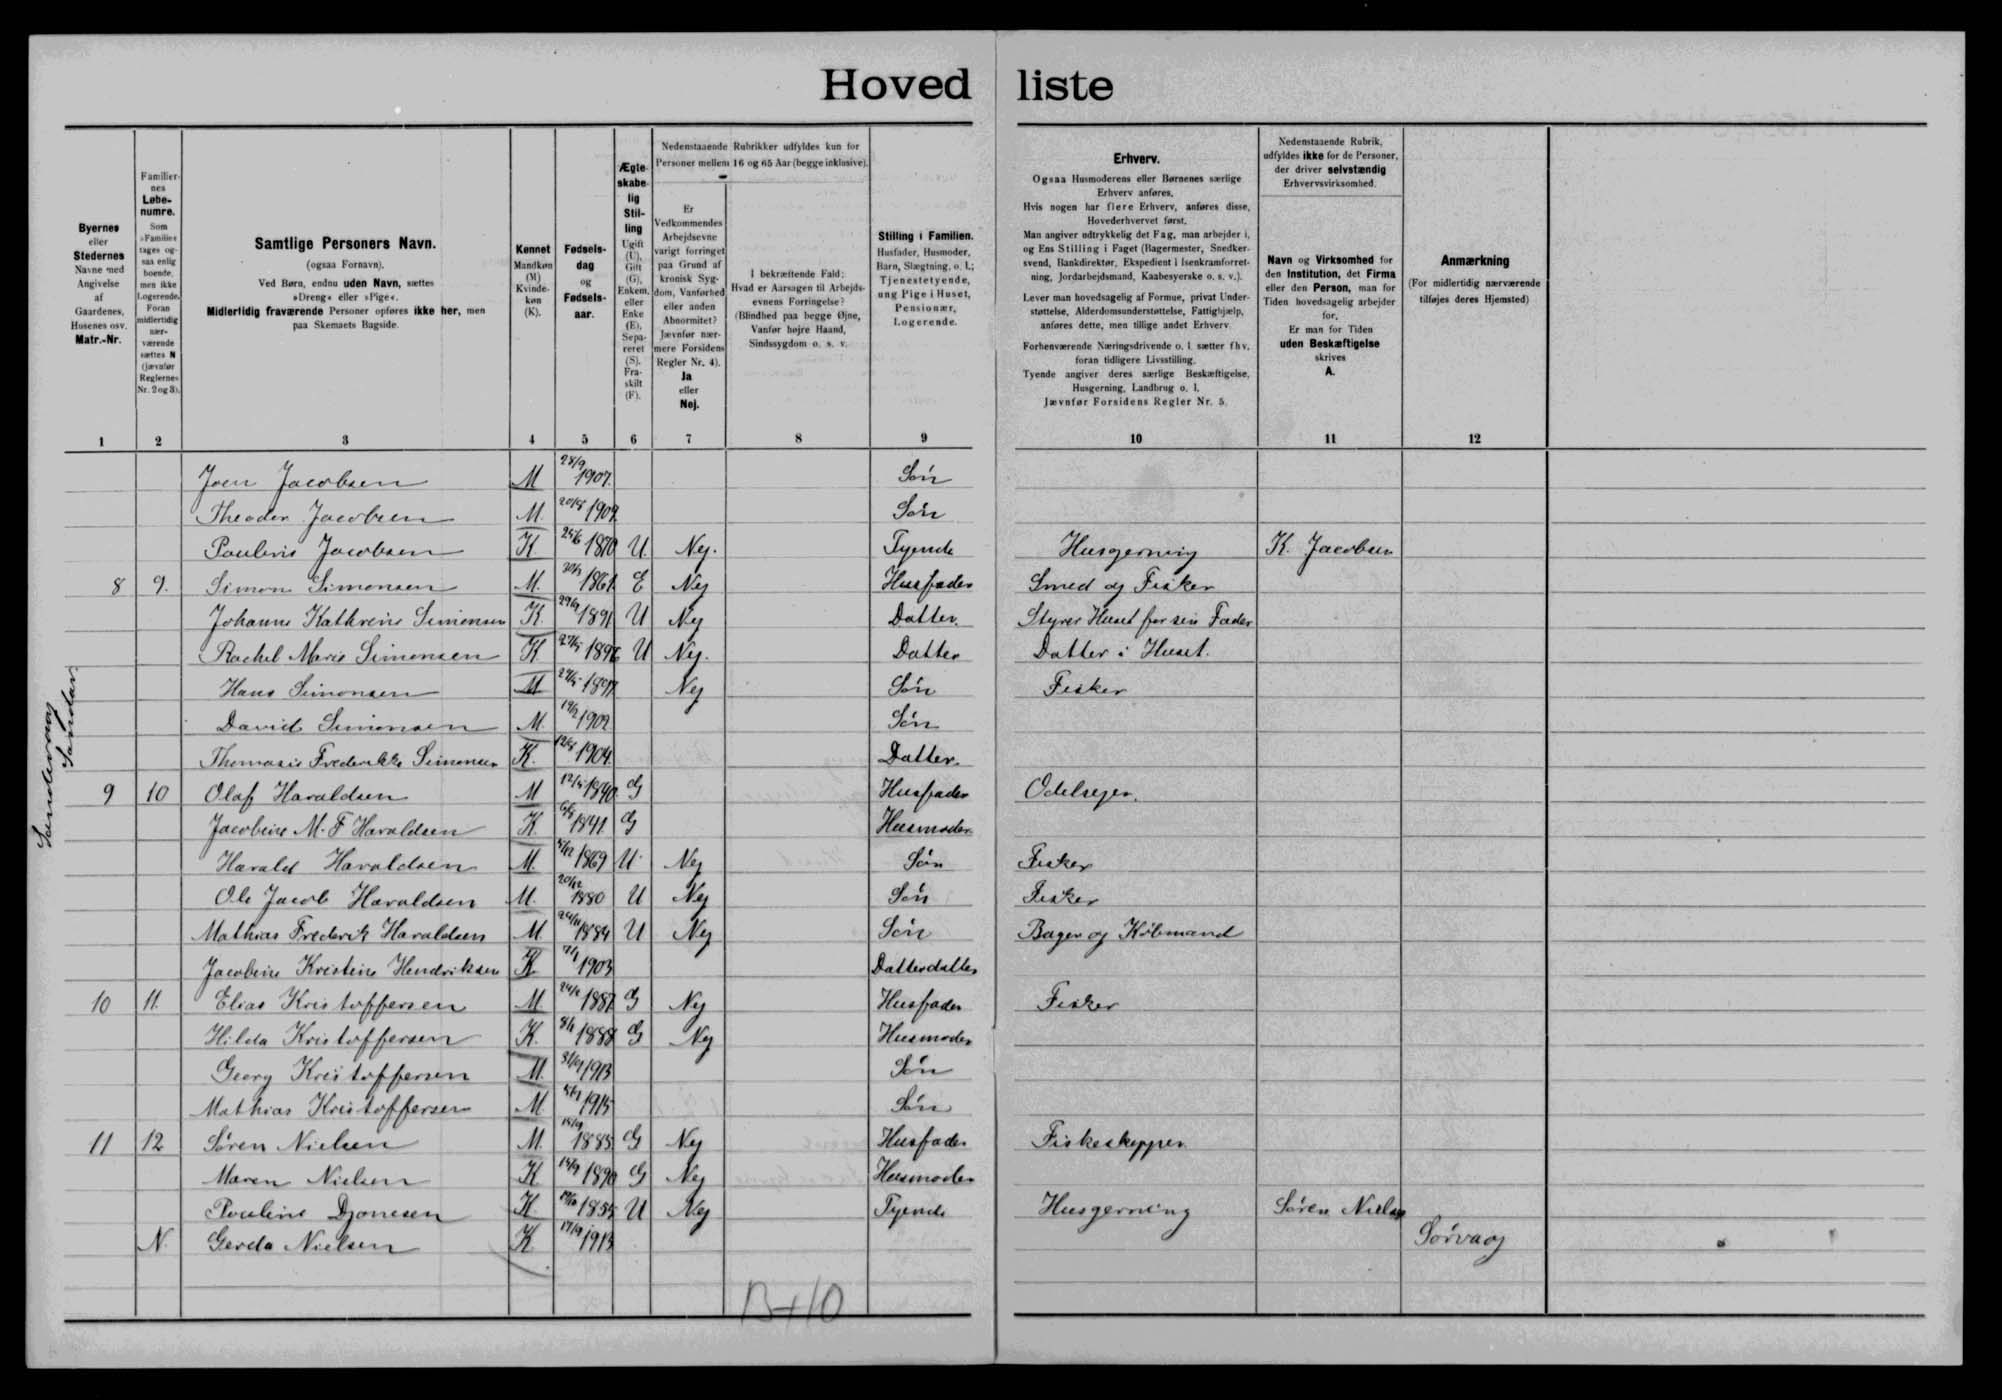 Hovedliste
Byernes
eller
Stedernes
Navne med
Angivelse
af
Gaardenes,
Husenes osv.
Matr.-Nr.
Familier-
nes
Løbe-
numre.
Som
»Familie«
tages og-
saa enlig
boende,
men ikke
Logerende.
Foran
midlertidig
nær-
værende
sættes N
(jævnfør
Reglernes
Nr. 2 og 3).
Samtlige Personers Navn.
(ogsaa Fornavn).
Ved Børn, endnu uden Navn, sættes
»Dreng« eller »Pige«.
Midlertidig fraværende Personer opføres ikke her, men
paa Skemaets Bagside.
Kønnet
Mandkøn
(M)
Kvinde-
køn
(K).
Fødsels-
dag
og
Fødsels-
aar.
Ægte-
skabe-
lig
Stil-
ling
Ugift
(U),
Gift
(G),
Enkem.
eller
Enke
(E),
Sepa-
reret
(S).
Fra-
skilt
(F).
Nedenstaaende Rubrikker udfyldes kun for
Personer mellem 16 og 65 Aar (begge inklusive).
Er
Vedkommendes
Arbejdsevne
varigt forringet
paa Grund af
kronisk Syg-
dom, Vanførhed
eller anden
Abnormitet?
Jævnfør nær-
mere Forsidens
Regler Nr. 4).
Ja
eller
Nej.
I bekræftende Fald:
Hvad er Aarsagen til Arbejds-
evnens Forringelse?
(Blindhed paa begge Øjne,
Vanfør højre Haand,
Sindssygdom o. s. v.
Stilling i Familien.
Husfader, Husmoder,
Barn, Slægtning, o. l.;
Tjenestetyende,
ung Pige i Huset,
Pensionær,
Logerende.
Erhverv.
Ogsaa Husmoderens eller Børnenes særlige
Erhverv anføres.
Hvis nogen har flere Erhverv, anføres disse,
Hovederhvervet først.
Man angiver udtrykkelig det Fag, man arbejder i,
og Ens Stilling i Faget (Bagermester, Snedker-
svend, Bankdirektør, Ekspedient i Isenkramforret-
ning, Jordarbejdsmand, Kaabesyerske o. s. v.).
Lever man hovedsagelig af Formue, privat Under-
støttelse, Alderdomsunderstøttelse, Fattighjælp,
anføres dette, men tillige andet Erhverv.
Forhenværende Næringsdrivende o. l. sætter fhv.
foran tidligere Livsstilling.
Tyende angiver deres særlige Beskæftigelse,
Husgerning, Landbrug o. l.
Jævnfør Forsidens Regler Nr. 5.
Nedenstaaende Rubrik,
udfyldes ikke for de Personer,
der driver selvstændig
Erhvervsvirksomhed.
Navn og Virksomhed for
den Institution, det Firma
eller den Person, man for
Tiden hovedsagelig arbejder
for.
Er man for Tiden
uden Beskæftigelse
skrives
A.
Anmærkning
(For midlertidig nærværende
tilføjes deres Hjemsted)
1 2 3 4 5 6 7 8 9 10 11 12
Joen Jacobsen M 28/9 1907. Søn
Theodor Jacobsen M. 1909. Søn
Paulevis Jacobsen K. 1870 U. Nej. Tyende Husgerning K. Jacobsen
8 9. Simon Simonsen M. 1861. E Nej Husfader Smed og Fisker
Johanne Kathrine Simonsen K. 1891 U Nej Datter. Styrer Huset for sin Fader
Rachel Marie Simonsen K 1896 U Nej. Datter Datter i Huset.
Hans Simonsen M 1897. Nej Søn Fisker
David Simonsen M. 1902 Søn
Thomasie Frederikke Simonsen K. 1904. Datter.
Sandevaag
9 10 Olaf Haraldsen M 1840. G Husfader Odelsejer.
Jacobine M. F Haraldsen K. 1841. G Husmoder
Harald Haraldsen M. 1869 U. Nej Søn Fisker
Ole Jacob Haraldsen M. 20/12 1880 U Nej Søn Fisker
Mathias Frederik Haraldsen M 1884 U Nej Søn Bager og Købmand
Jacobine Kristine Hendriksen K 1903 Datterdatter
10 11. Elias Kristoffersen M. 1887. G Nej Husfader Fisker
Hilda Kristoffersen K. 1888 G Nej Husmoder
Georg Kristoffersen M. 1913 Søn
Mathias Kristoffersen M 1915 Søn
11 12 Søren Nielsen M. 1885. G Nej Husfader Fiskeskipper
Maren Nielsen K 1890 G Nej Husmoder
Pouline Djonesen K. U Nej Tyende Husgerning Søren Nielsen
N. Gerda Nielsen K 1913 Sørvaag
13+10